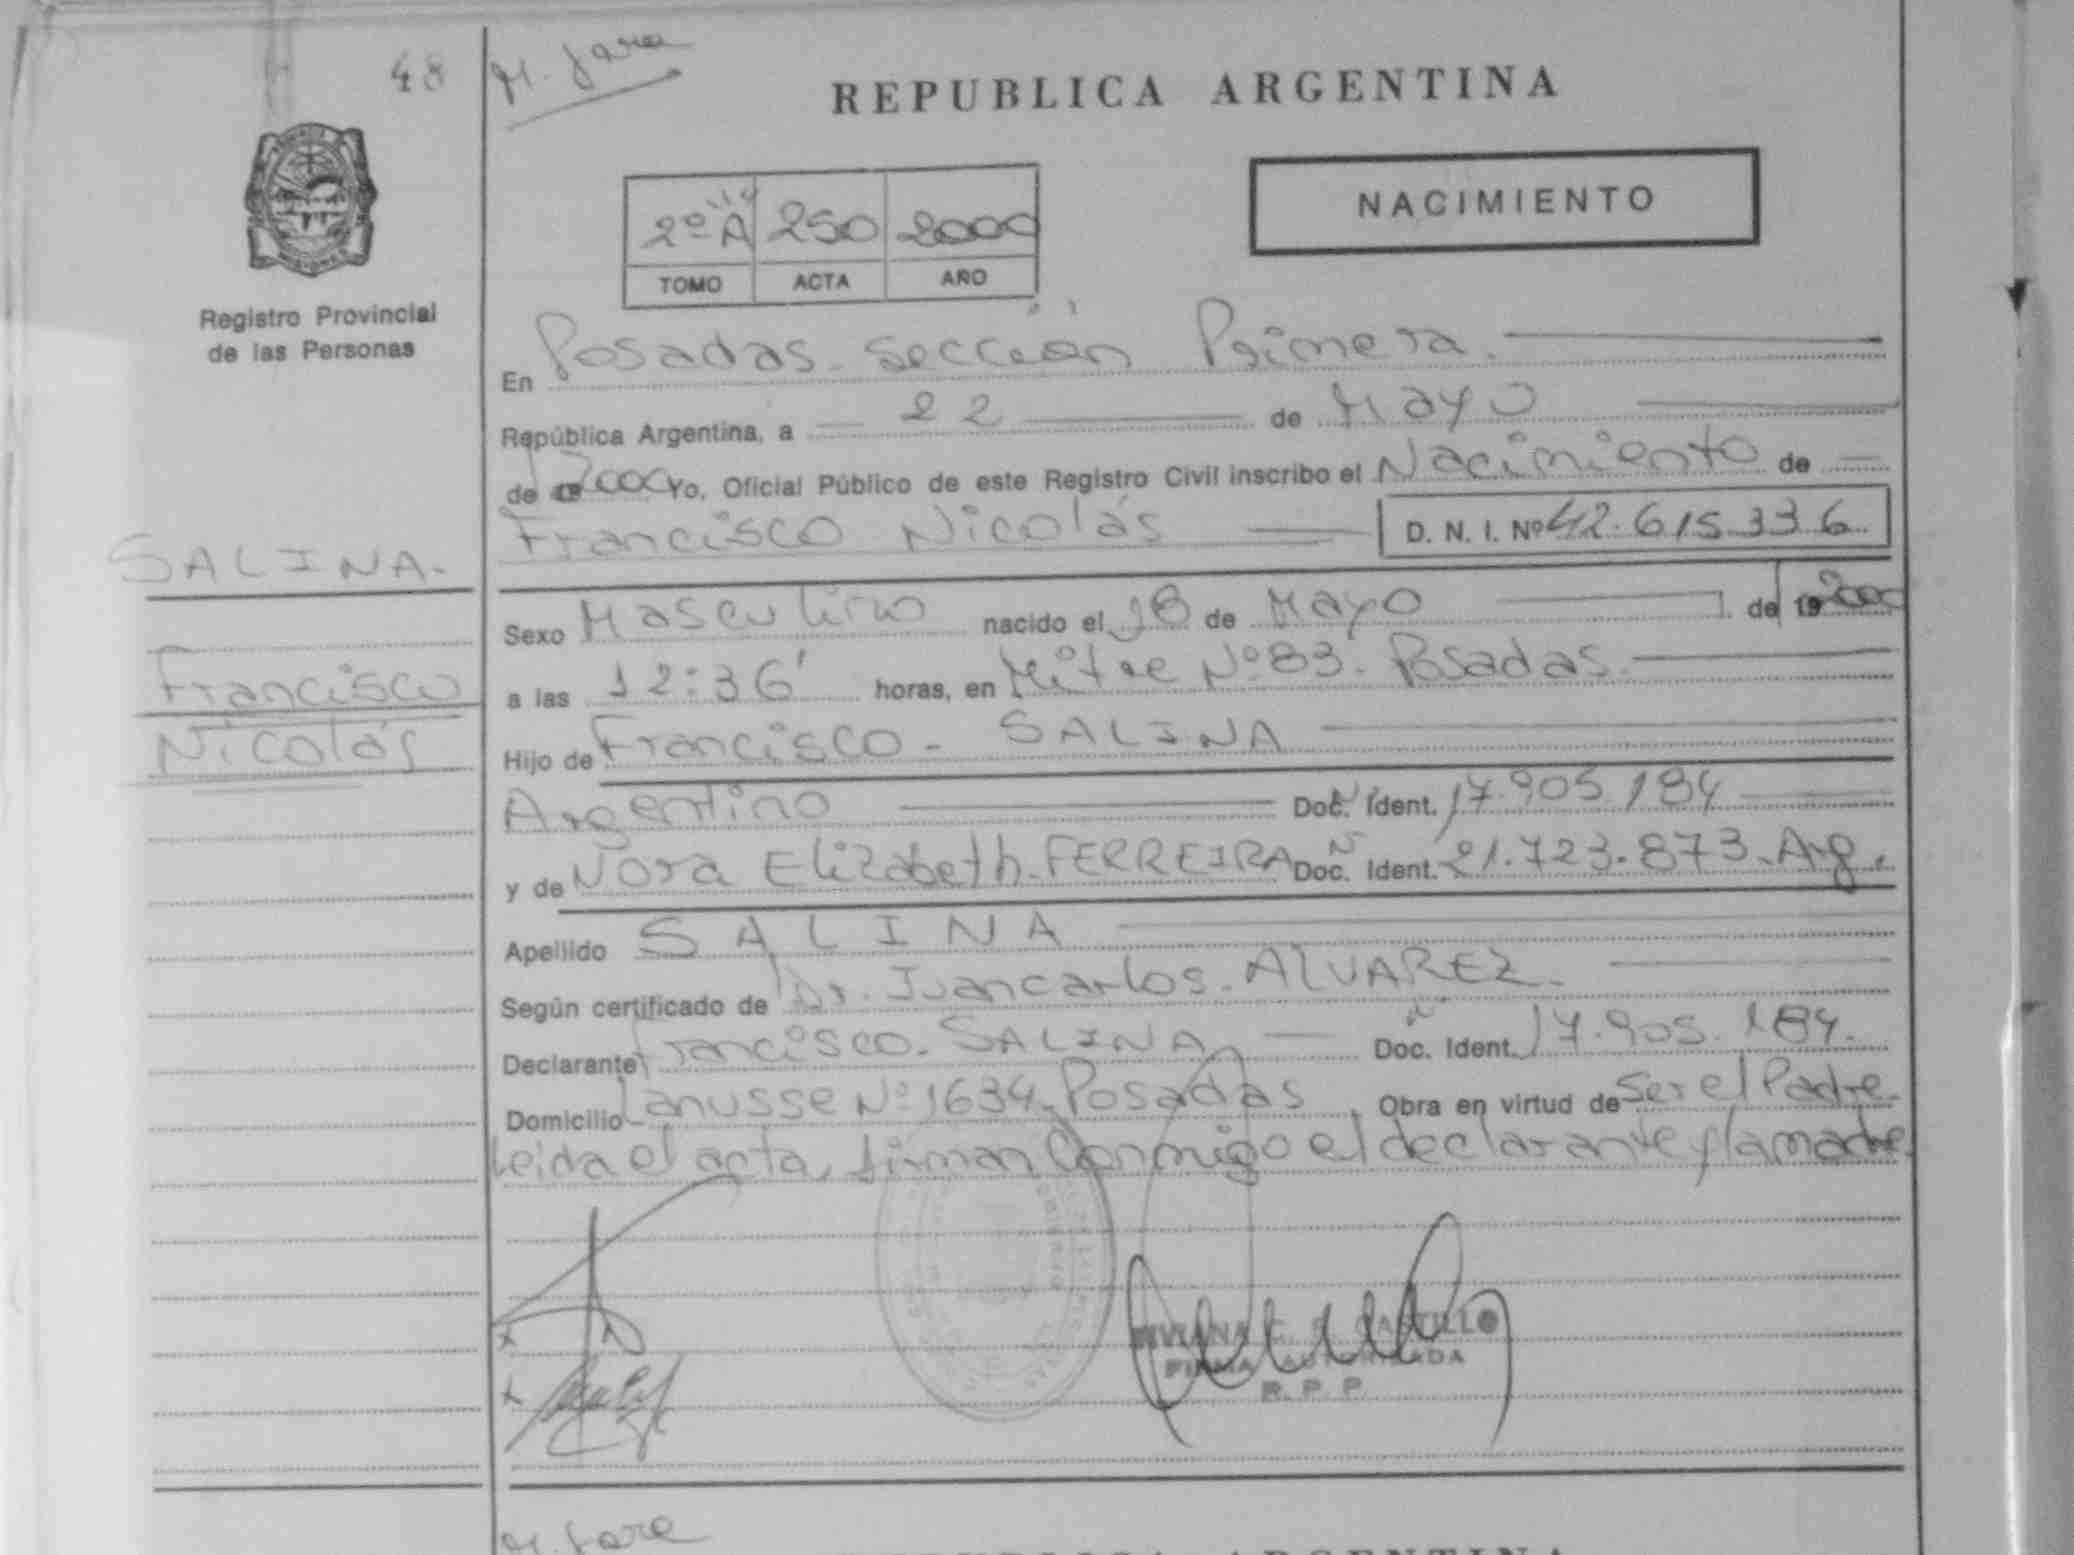 48
M. Jara
REPUBLICA ARGENTINA
NACIMIENTO
2º A 250 2000
TOMO ACTA AÑO
Registro Provincial
de las Personas
En Posadas. Sección Primera.
República Argentina, a 22 de Mayo
de 2000 Yo, Oficial Público de este Registro Civil inscribo el Nacimiento de
Francisco Nicolás D. N. I. Nº 42.615.336
SALINA.
Francisco
Nicolás
Sexo Masculino nacido el 18 de Mayo de 19 2000
a las 12:36' horas, en Mitre Nº 83. Posadas.
Hijo de Francisco - SALINA
Argentino Doc. Ident. 17.905.184
y de Nora Elizabeth. FERREIRA Doc. Ident. 21.723.873. Arg.
Apellido SALINA
Según certificado de Dr. Juan carlos. ALVAREZ.
Declarante Francisco. SALINA Doc. Ident. 17.905.184.
Domicilio Lanusse Nº 1634. Posadas Obra en virtud de ser el Padre.
Leida el acta, firman Conmigo el declarante y la madre.
VIVIANA C. R. CASTILLO
FIRMA AUTORIZADA
R. P. P
M. Jara
REPUBLICA ARGENTINA